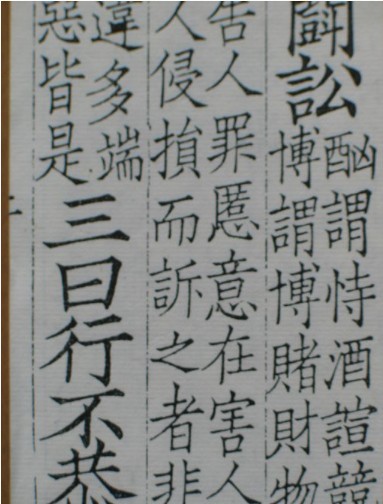 鬪訟
酗謂恃酒諠競
博謂博賭財物
告人罪慝意在害人
人侵損而訴之者非
違多端
惡皆是
三曰行不恭